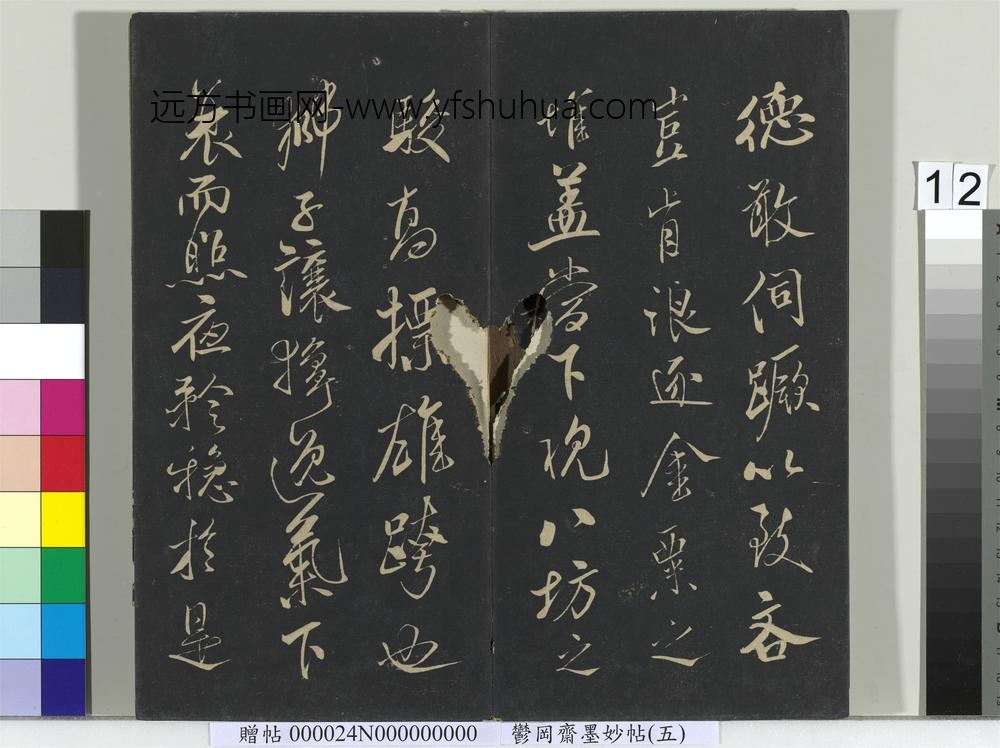 德敢伺蹶以致吝
豈肯浪逐金粟之
堆蓋當下視八坊之
駿高標雄跨也
獅子讓獰逸氣下
衰而照夜矜穩於是
远方书画网-www.yfshuhua.com
12
贈帖 000024N000000000 鬱岡齋墨妙帖(五)